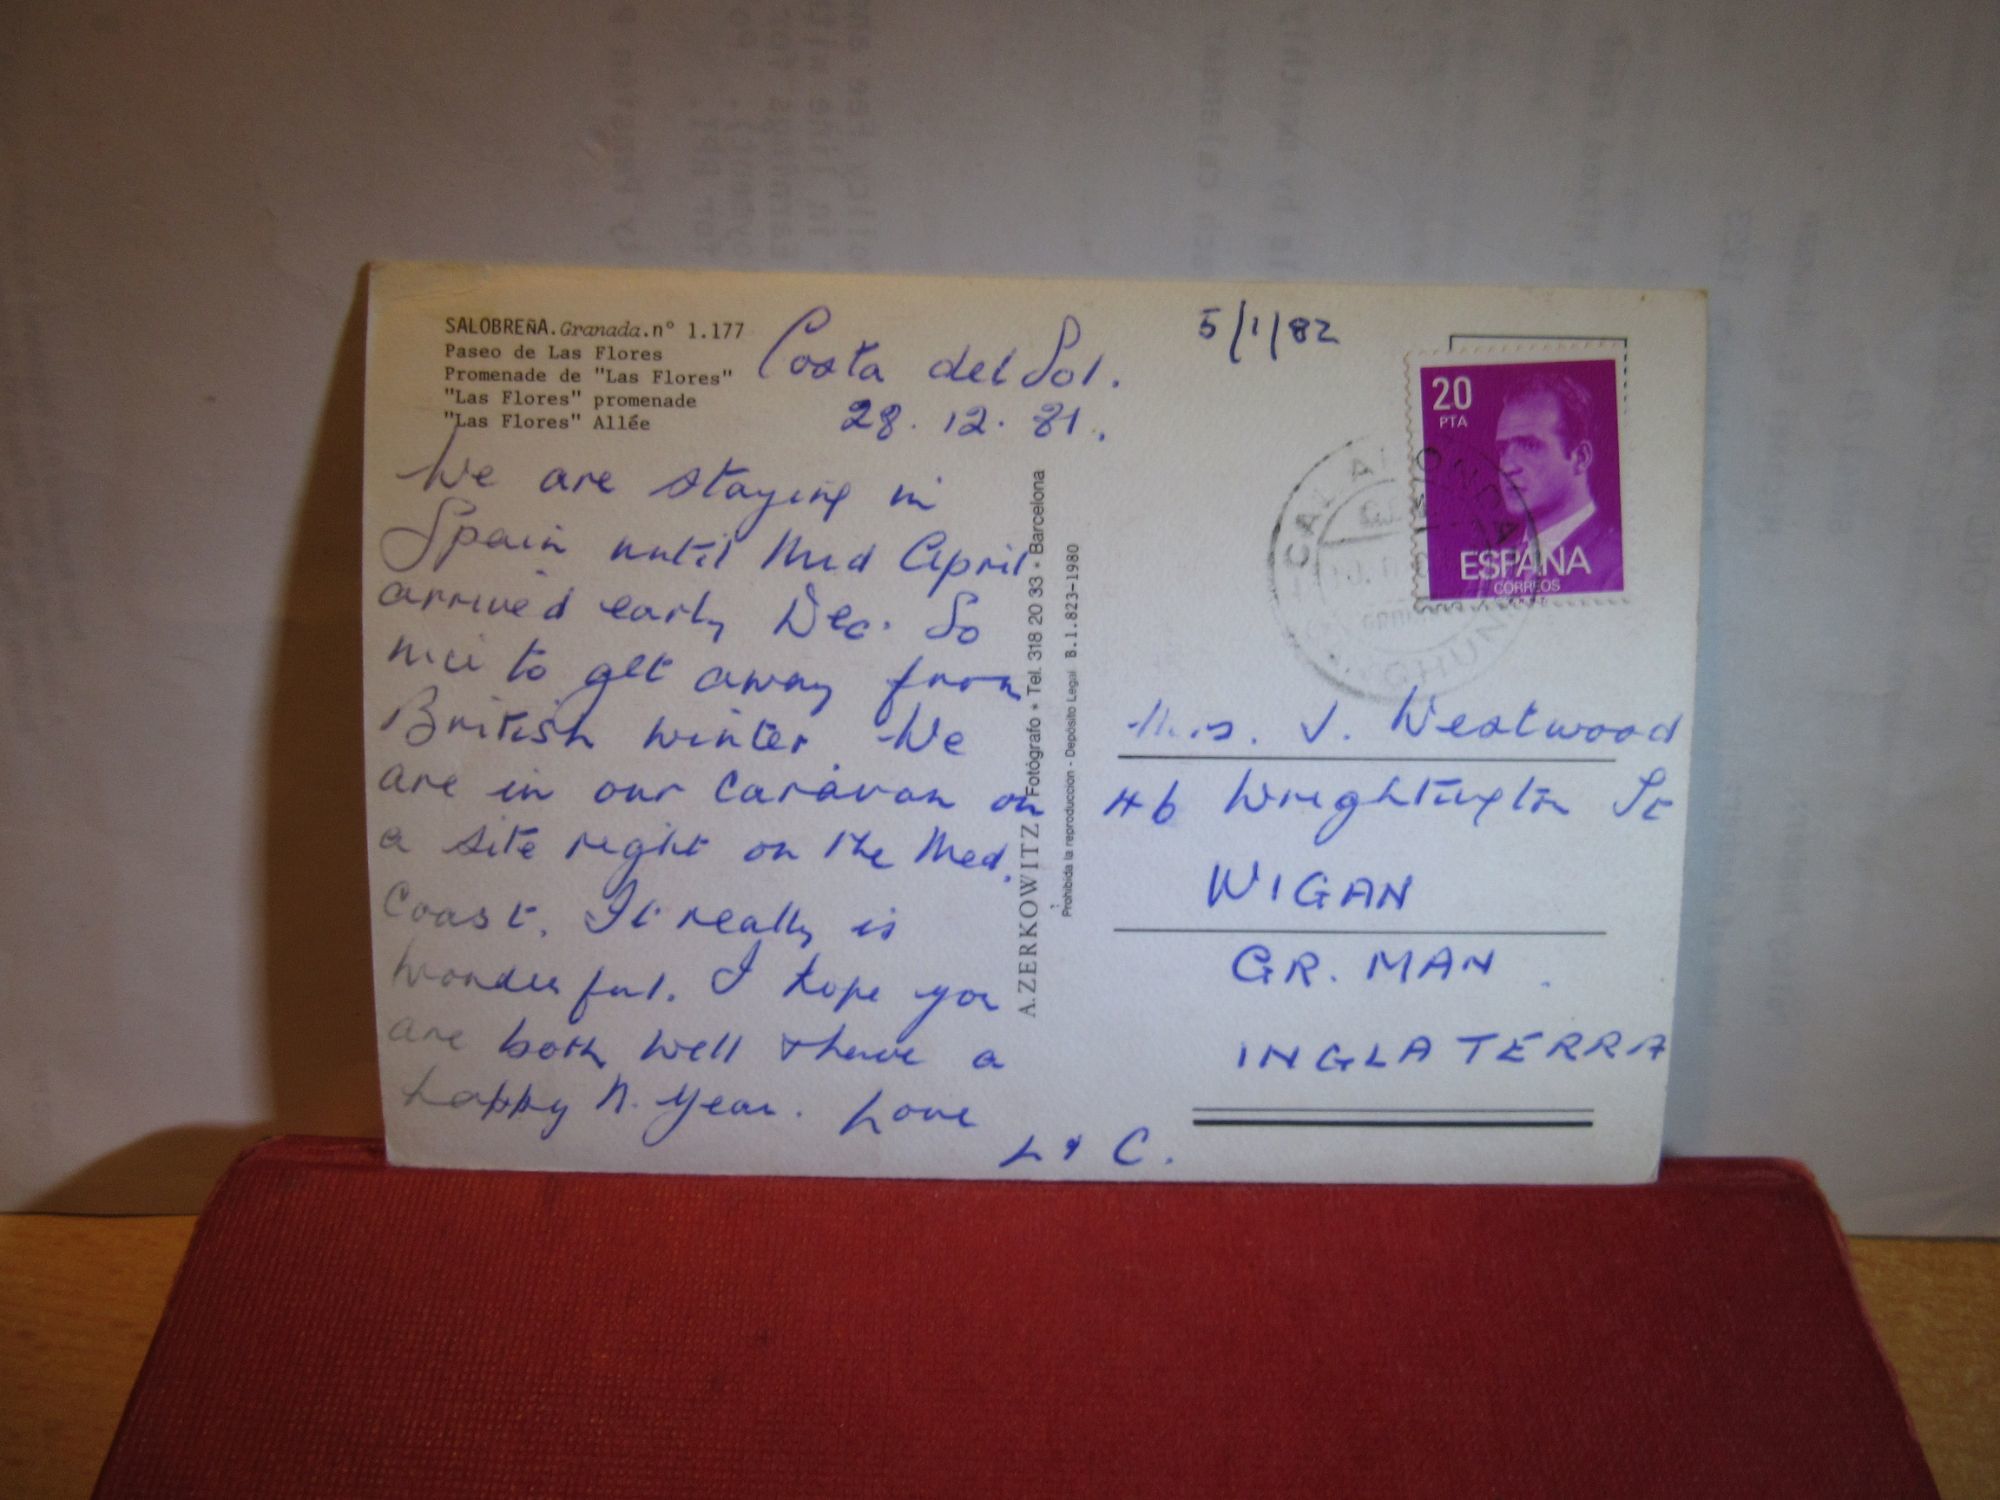 SALOBREÑA. Granada. nº 1.177
Paseo de Las Flores
Promenade de "Las Flores"
"Las Flores" promenade
"Las Flores" Allée
Costa del Sol.
28.12.81.
We are staying in
Spain until Mid April
arrived early Dec. So
nice to get away from
British winter. We
are in our caravan on
a site right on the Med.
Coast. It really is
wonderful. I hope you
are both well & have a
happy N. Year. Love
L & C.
A. ZERKOWITZ Fotógrafo • Tel. 318 20 33 • Barcelona
Prohibida la reproduccion - Depósito Legal B.1.823-1980
5/1/82
20
PTA
ESPAÑA
CORREOS
CALAHONDA
Mrs. J. Westwood
46 Wrightington St
WIGAN
GR. MAN.
INGLATERRA